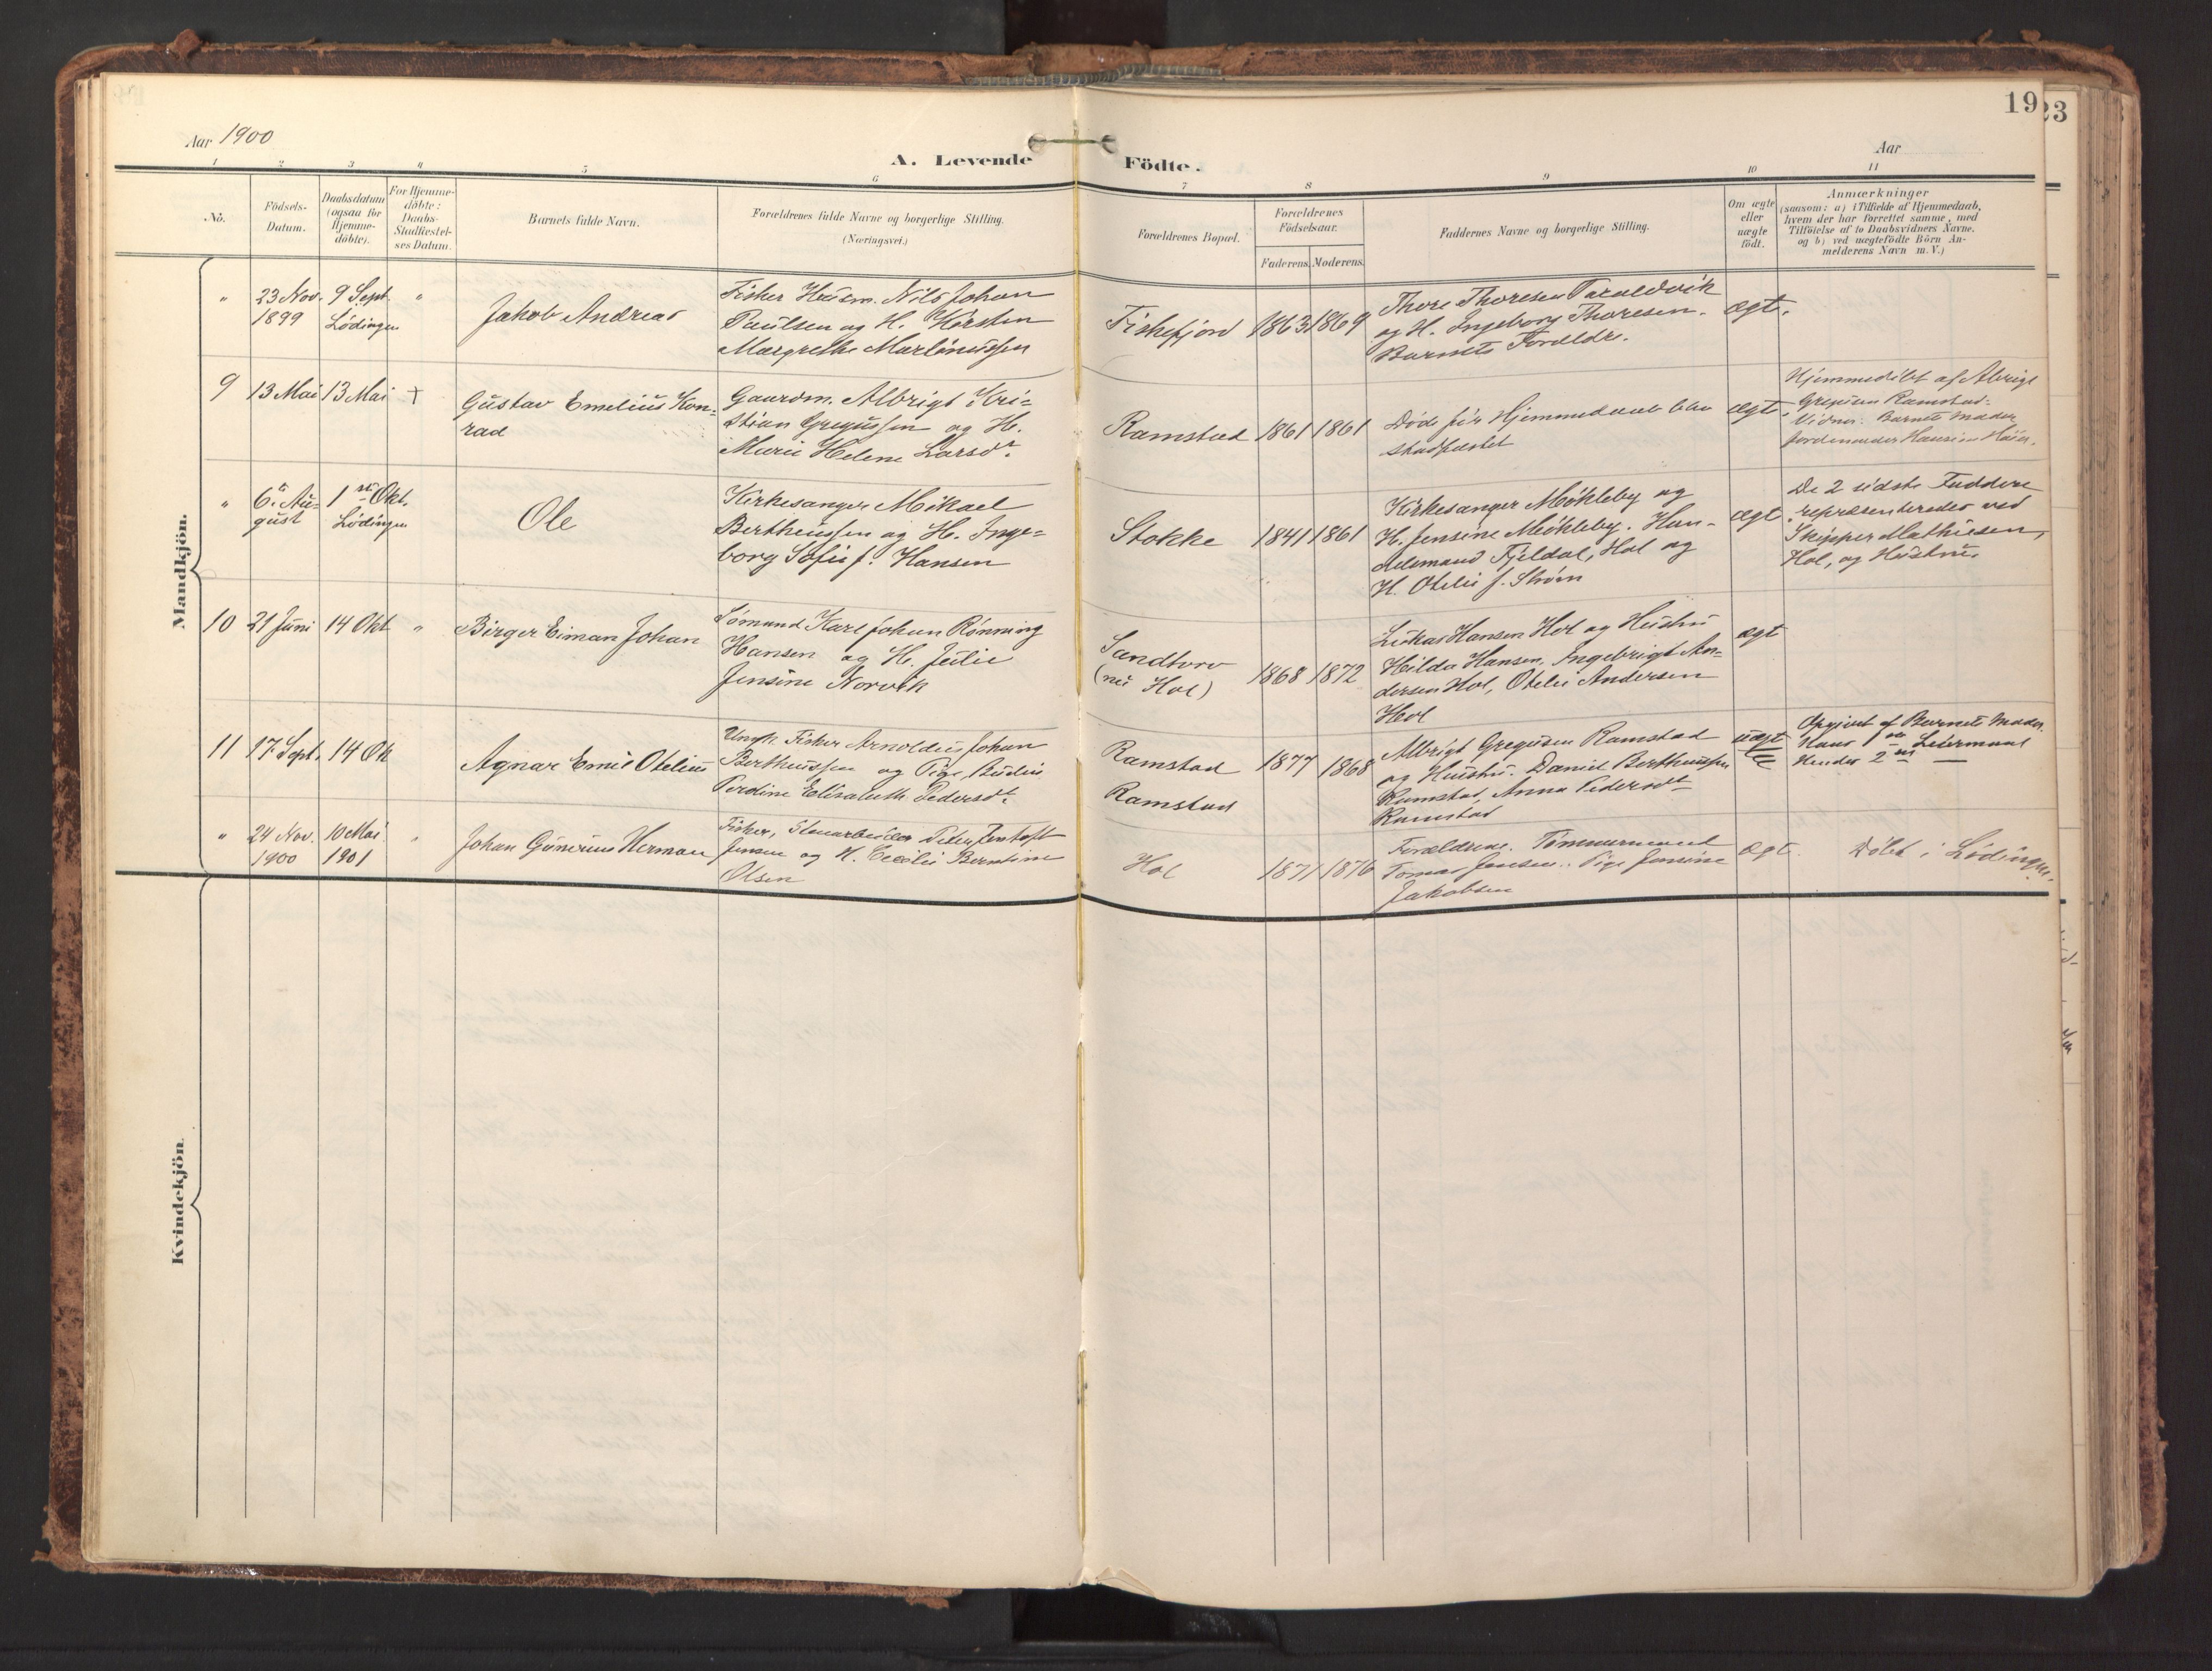 19
23
Aar 1900
A. Levende
Födte.
Aar
1 2 3 4 5 6 7 8 9 10 11
No.
Födsels-
Datum.
Daabsdatum
(ogsaa for
Hjemme-
döbte).
For Hjemme-
döbte:
Daabs-
Stadfæstel-
ses Datum.
Barnets fulde Navn.
Forældrenes fulde Navne og borgerlige Stilling.
(Næringsvei.)
Forældrenes Bopæl.
Forældrenes
Födselsaar.
Faderens.
Moderens.
Faddernes Navne og borgerlige Stilling.
Om ægte
eller
uægte
født.
Anmærkninger
(saasom: a) i Tilfælde af Hjemmedaab,
hvem der har forrettet samme, med
Tilföielse af to Daabsvidners Navne.
og b) ved uægtefödte Börn An-
melderens Navn m.V.)
Mandkjön.
"
23 Nov.
1899
9 Sept.
Lödingen
"
Jakob Andreas
Fisker Husm. Nils Johan
Paulsen og H. Kirsten
Margrethe Martinussen
Fiskefjord
1863
1869
Thore Thoresen
og H. Ingeborg Thoresen.
Barnets Forældre.
ægt.
9
13 Mai
13 Mai
+
Gustav Emelius Kon-
rad
Gaardm. Albrigt Kri-
stian Gregussen og H.
Marie Helene Larsdt.
Ramstad
1861
1861
Døde før Hjemmedaab blev
stadfæstet
ægt.
Hjemmedöbt af Albrigt
Gregusen Ramstad.
Vidner: Barnets Moder
Jordemoder
"
6te Au-
gust
1ste Okt.
Lödingen
Ole
Kirkesanger Mikael
Bertheussen og H. Inge-
borg Sofie f. Hansen
Stokke
1841
1861
Kirkesanger Møkleby og
H. Jensine Møkleby. Han-
delsmand Fjeldal, Hol og
H. Otelie f. Strøm
ægt
De 2 sidste Faddere
repræsenteredes ved
Skipper Mathiesen,
Hol, og Hustru.
10
21 Juni
14 Okt
"
Birger Eiman Johan
Sømand Karl Johan Rønning
Hansen og H. Julie
Jensine Norvik
Sandtorv
(nu Hol)
1868
1872
Lukas Hansen Hol og Hustru
Hilda Hansen, Ingebrigt An-
dersen Hol, Otelie Andersen
Hol
ægt
11
17 Sept.
14 Ok
Agnar Emil Otelius
Ungk. Fisker Arnoldus Johan
Bertheussen og Pige
Perdine Elisabeth Pedersdt.
Ramstad
Ramstad
1877
1868
Albrigt Gregusen Ramstad
og Hustru. Daniel Bertheussen
Ramstad, Anna Pedersdt
Ramstad
uægt
Opgivet af Barnets Moder.
Hans 1ste Leiermaal
Hendes 2det —
"
24 Nov.
1900
10 Mai
1901
"
Johan Gunerius Herman
Fisker, Stenarbeider Peter
Jensen og H. Cecilie Berntine
Olsen
Hol
1871
1876
Forældrene. Tømmermand
Tomas Jensen. Pige Jensine
Jakobsen
ægt.
Døbt i Lödingen.
Kvindekjön.